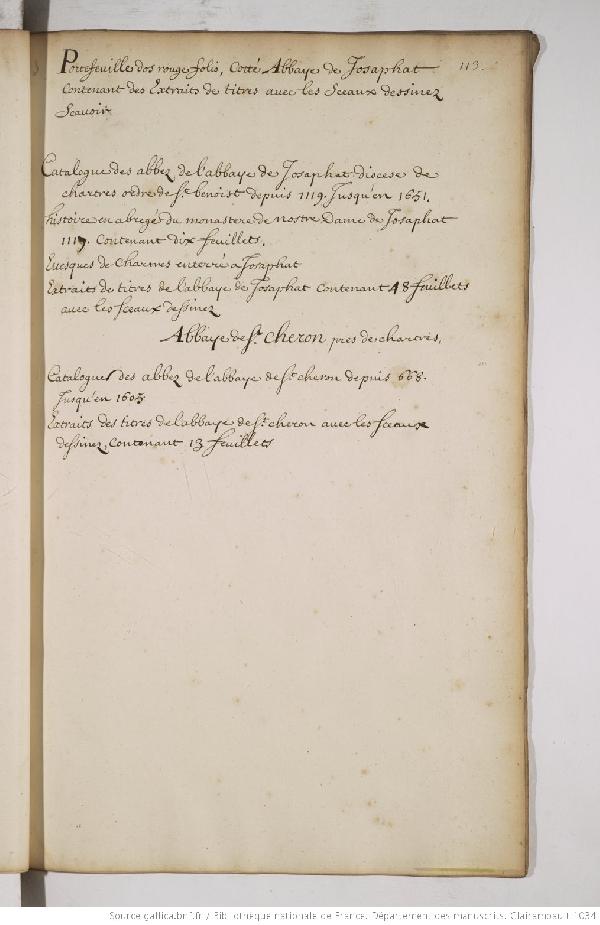 Portefeuille dos rouge folio, Cotté Abbaye de Josaphat 113.
Contenant des Extraits de titres avec les Sceaux dessinez
Scauoir
Catalogue des abbez de l'abbaye de Josaphat diocese de
chartres ordre de St. benoist depuis 1119. Jusqu'en 1651.
histoire en abregé du monastere de nostre Dame de Josaphat
1119. Contenant dix feuillets.
Euesques de Chartres enterré a Josaphat
Extraits de titres de l'abbaye de Josaphat contenant 48 feuillets
avec les sceaux dessinez
Abbaye de St. Cheron pres de chartres.
Catalogues des abbez de l'abbaye de St. cheron depuis 668.
Jusqu'en 1605
Extraits des titres de l'abbaye de St. cheron avec les sceaux
dessinez, Contenant 13 feuillets
Source gallica.bnf.fr / Bibliothèque nationale de France. Département des manuscrits. Clairambault 1034